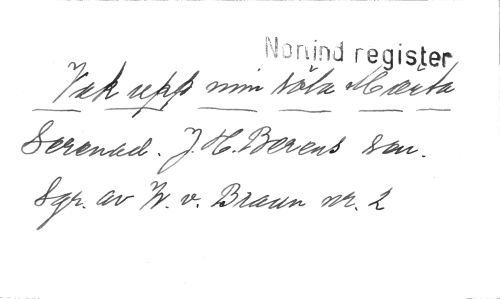 Norlind register
Vak upp min söta Mærta
Serenad. J. H. Berens son.
Sgr. av W. v. Braun nr. 2